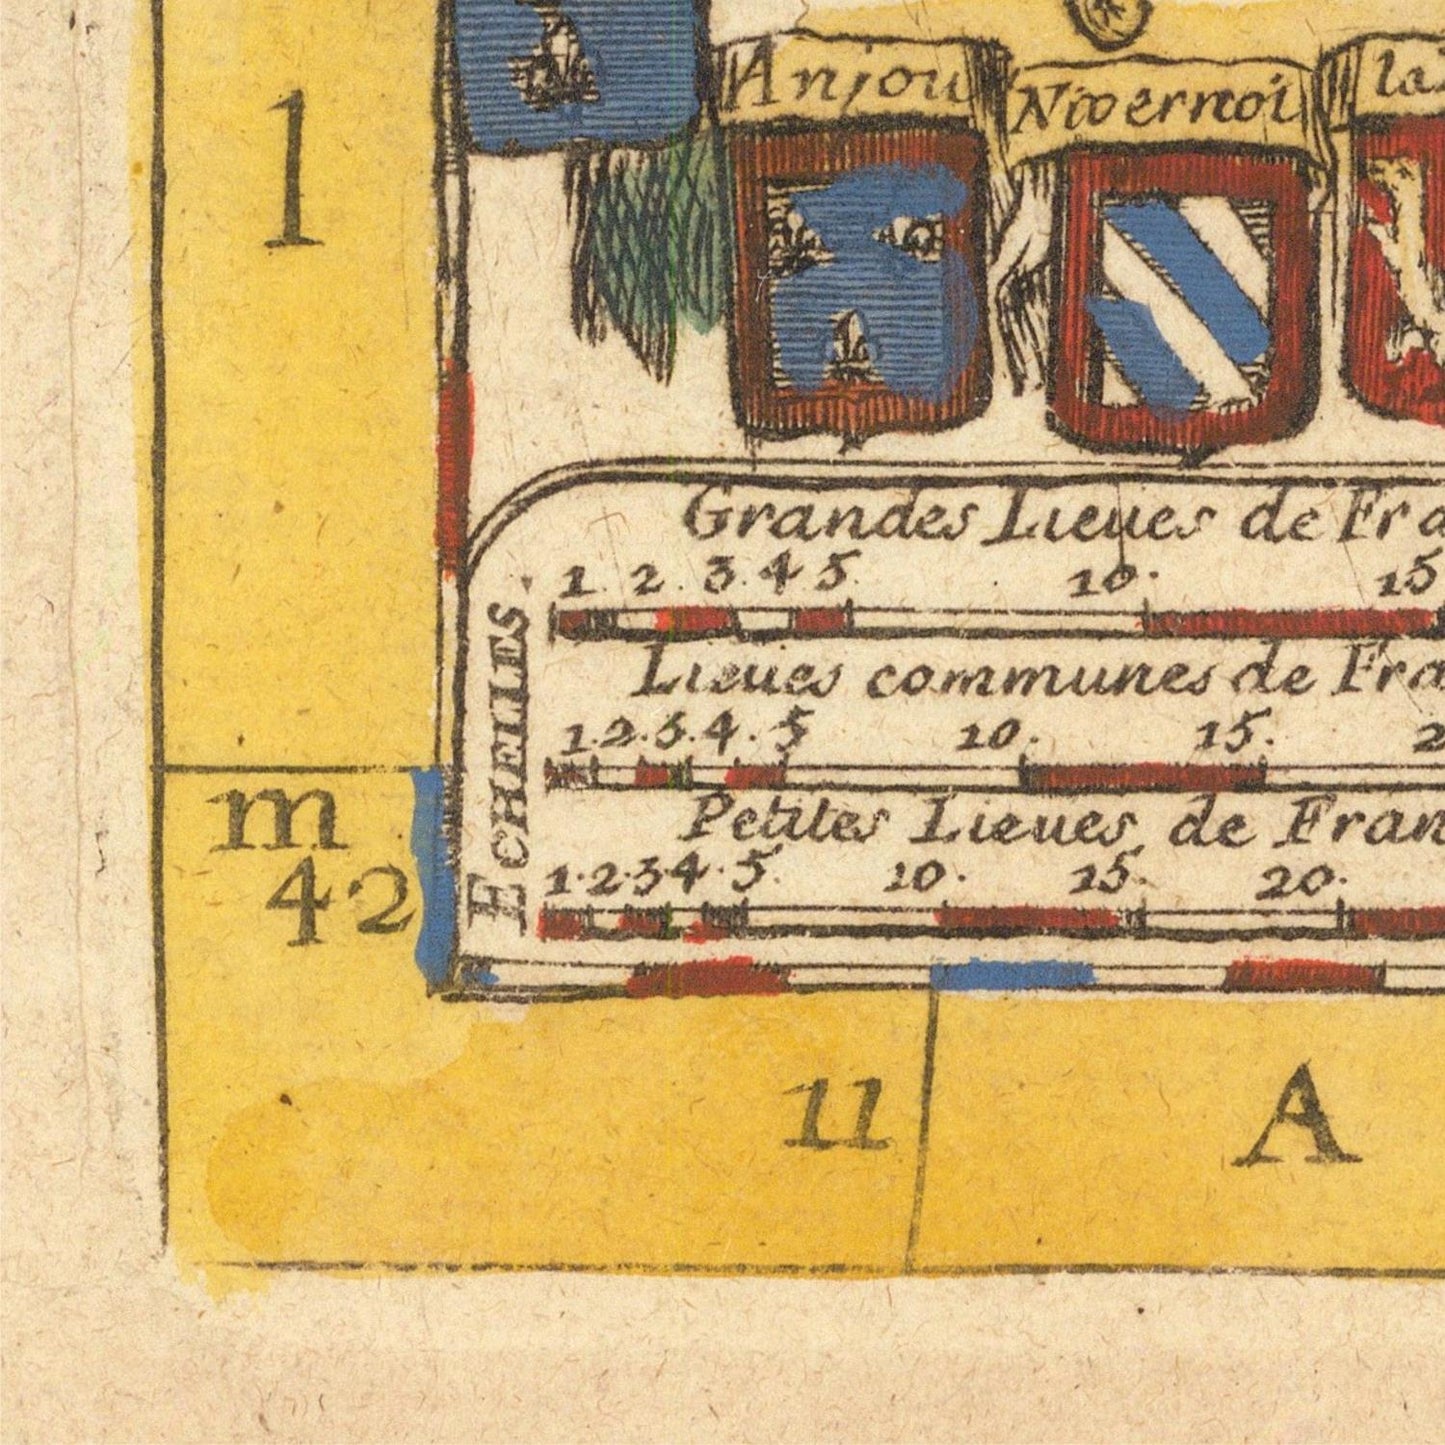 1
Anjou
Nivernoi
la
Grandes Lieues de Fra
1. 2. 3. 4 5. 10. 15
Lieues communes de Fra
1.2.3.4. 5 10. 15. 2
Petites Lieues de Fran
1.2.3 4. 5. 10. 15. 20.
ECHELLES.
m
42
11
A